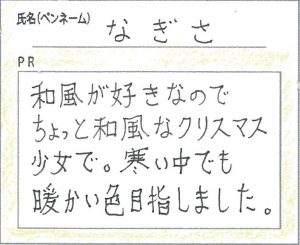 氏名(ペンネーム)
なぎさ
PR
和風が好きなので
ちょっと和風なクリスマス
少女で。寒い中でも
暖かい色目指しました。